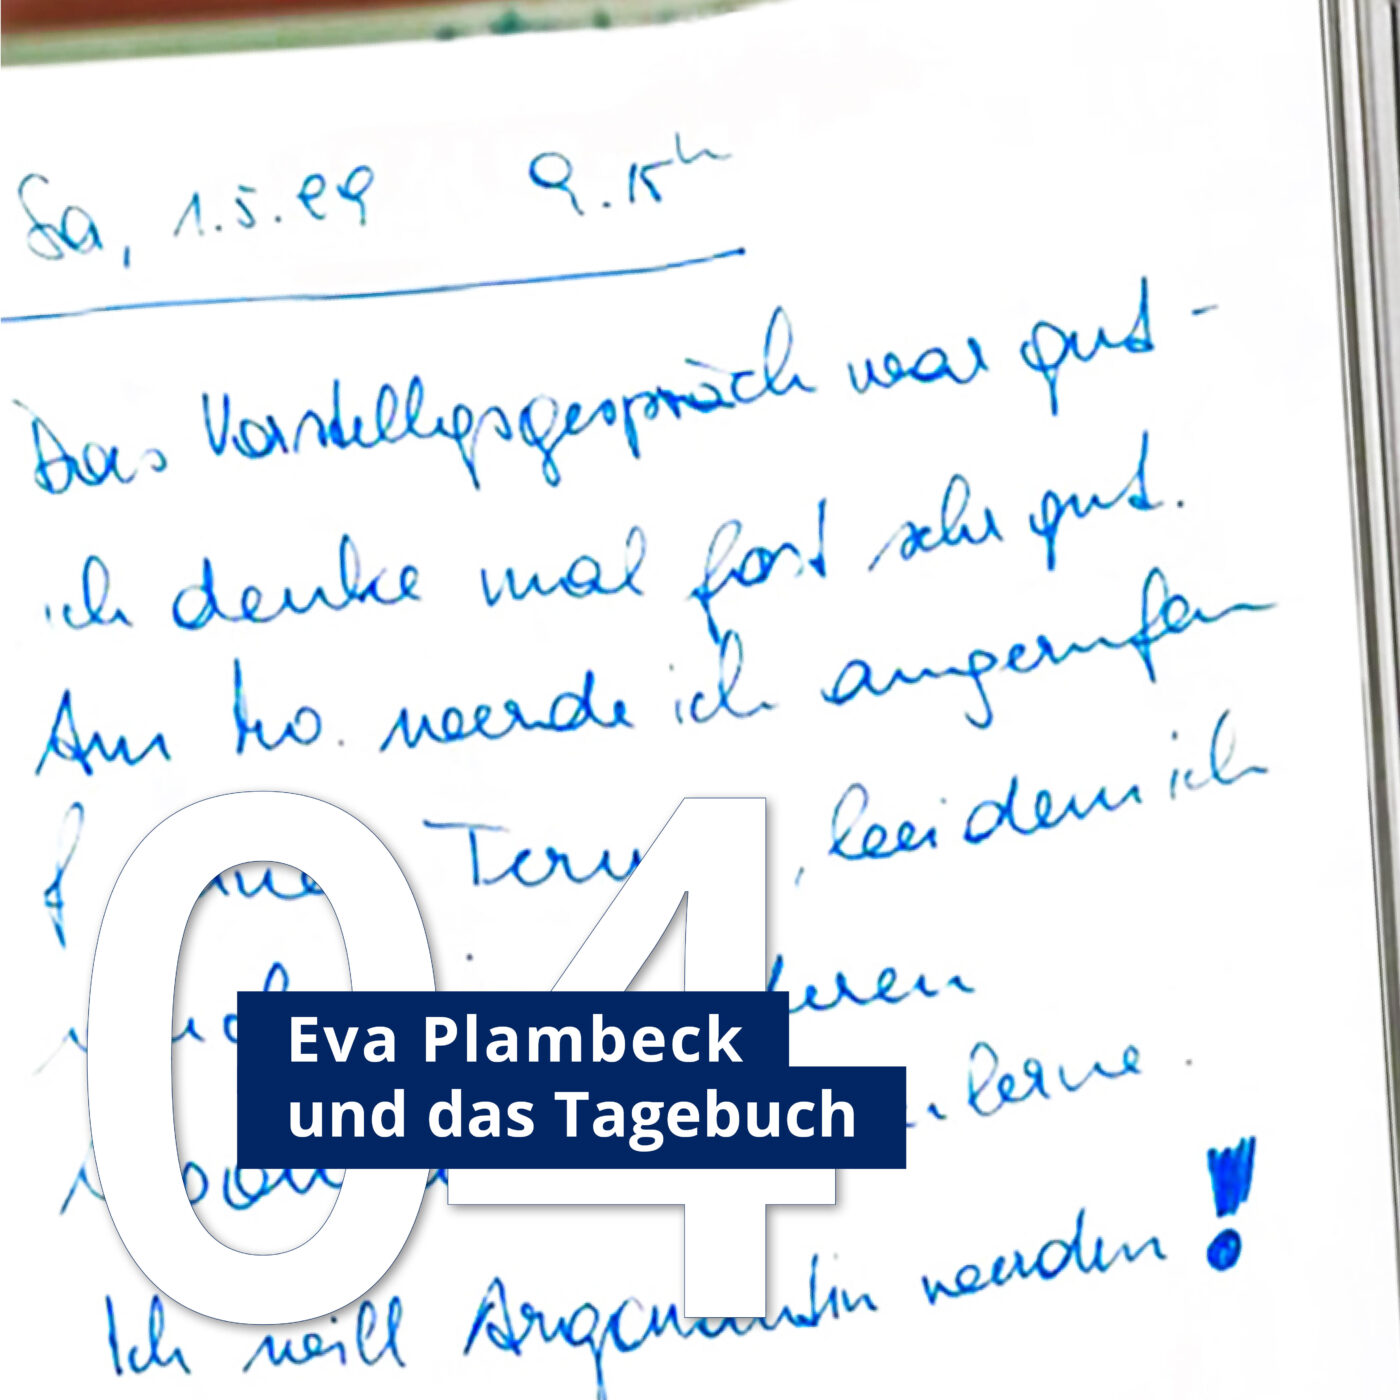 Sa, 1.5.99 9.15h
Das Vorstellgsgespräch war gut -
ich denke mal fast sehr gut.
Am Mo. werde ich angerufen
, bei dem ich
lerne.
Ich will werden!
04
Eva Plambeck
und das Tagebuch